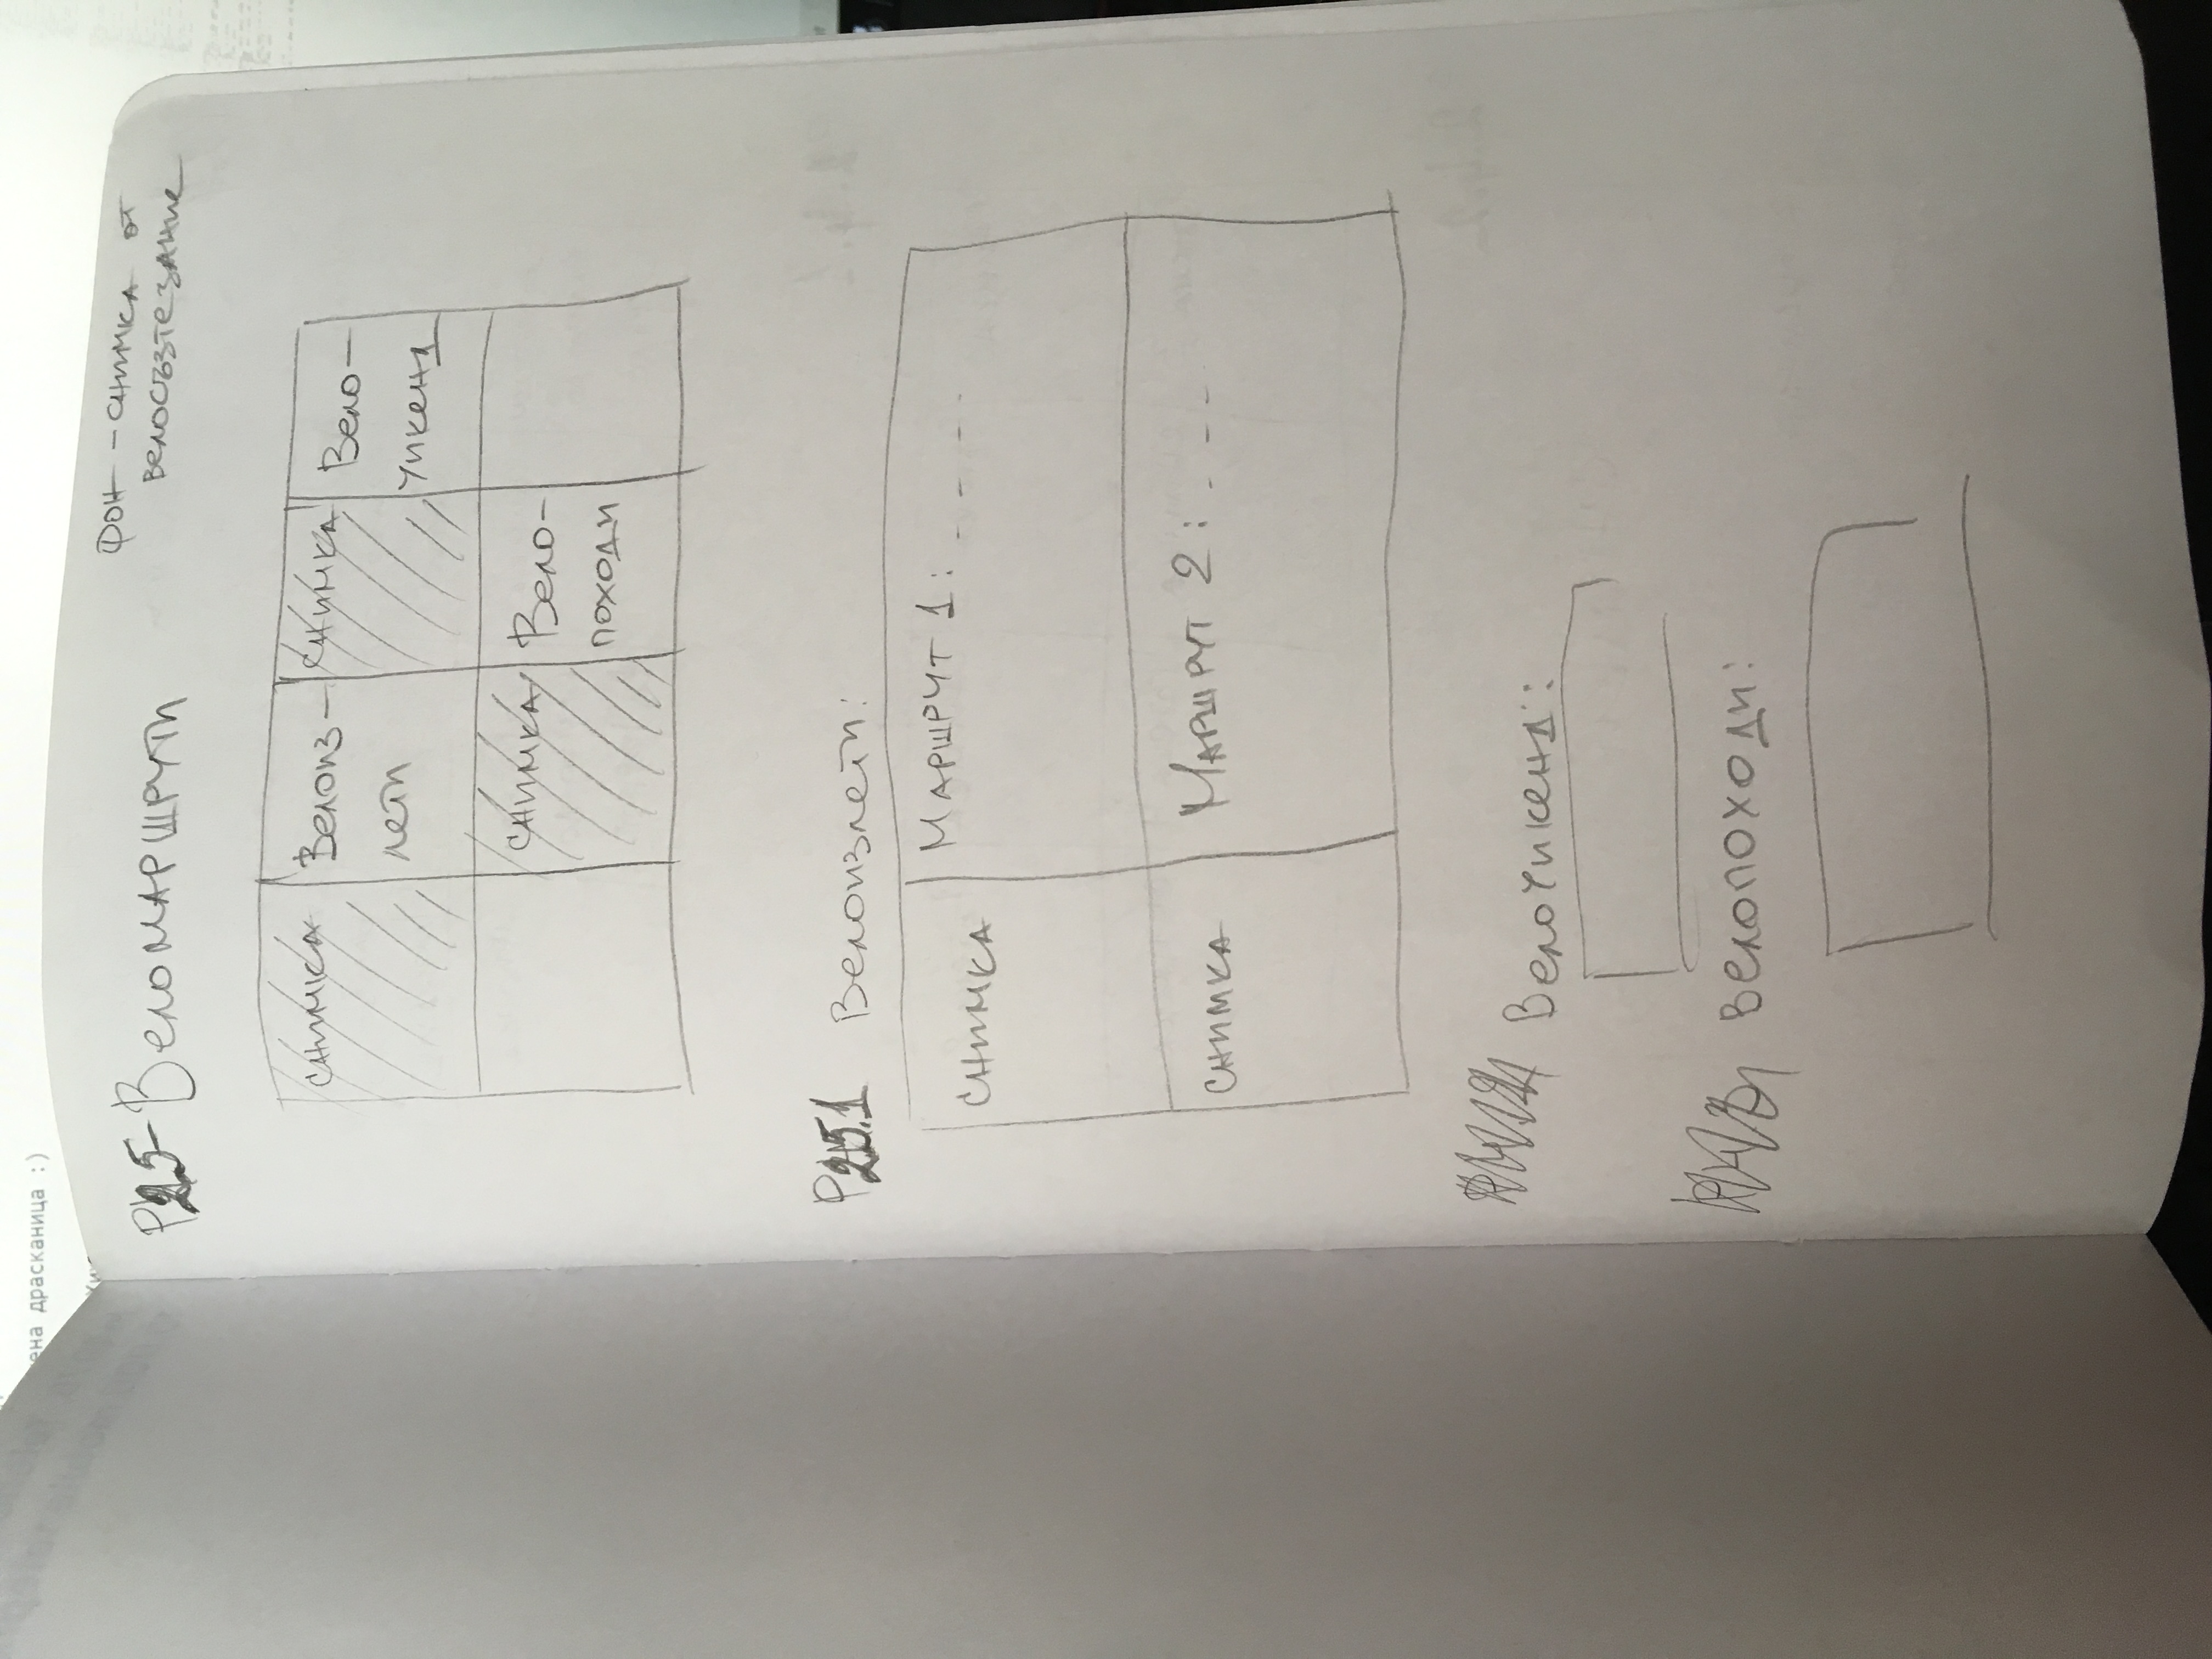 ена драсканица :)
Р25 - Веломаршрути
Фон - снимка от
велосъзтезание
снимка
Велоиз-
лети
снимка
Вело-
уикенд
снимка
Вело-
походи
Р25.1 Велоизлети:
снимка
Маршрут 1: _ _ _ _
снимка
Маршрут 2: _ _ _
Велоуикенд:
Велопоходи: